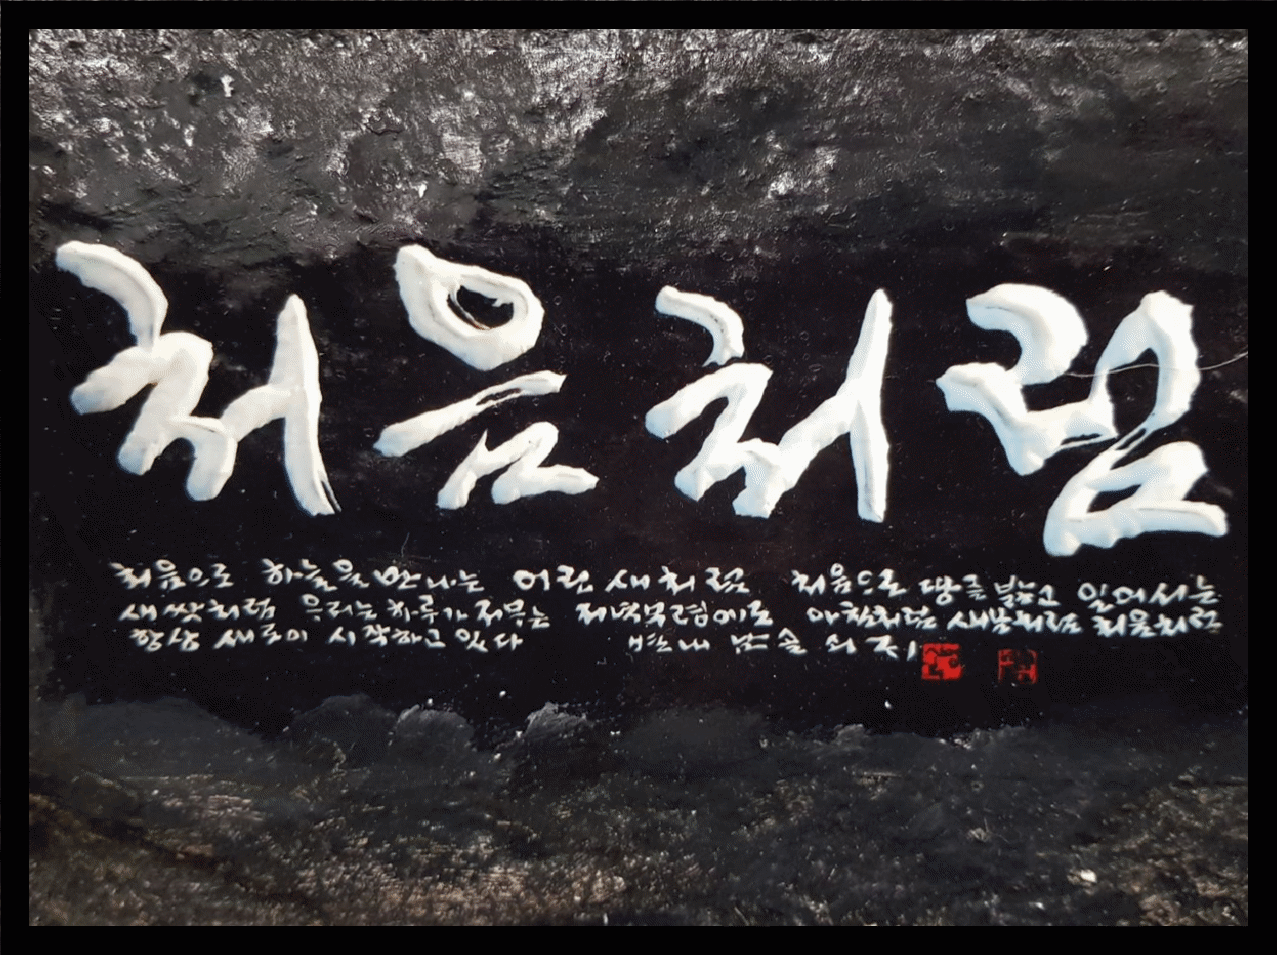 처음처럼
처음으로 하늘을 만나는 어린 새처럼 처음으로 땅을 밟고 일어서는
새싹처럼 우리는 하루가 저무는 저녁무렵에도 아침처럼 새봄처럼 처음처럼
항상 새로이 시작하고 있다